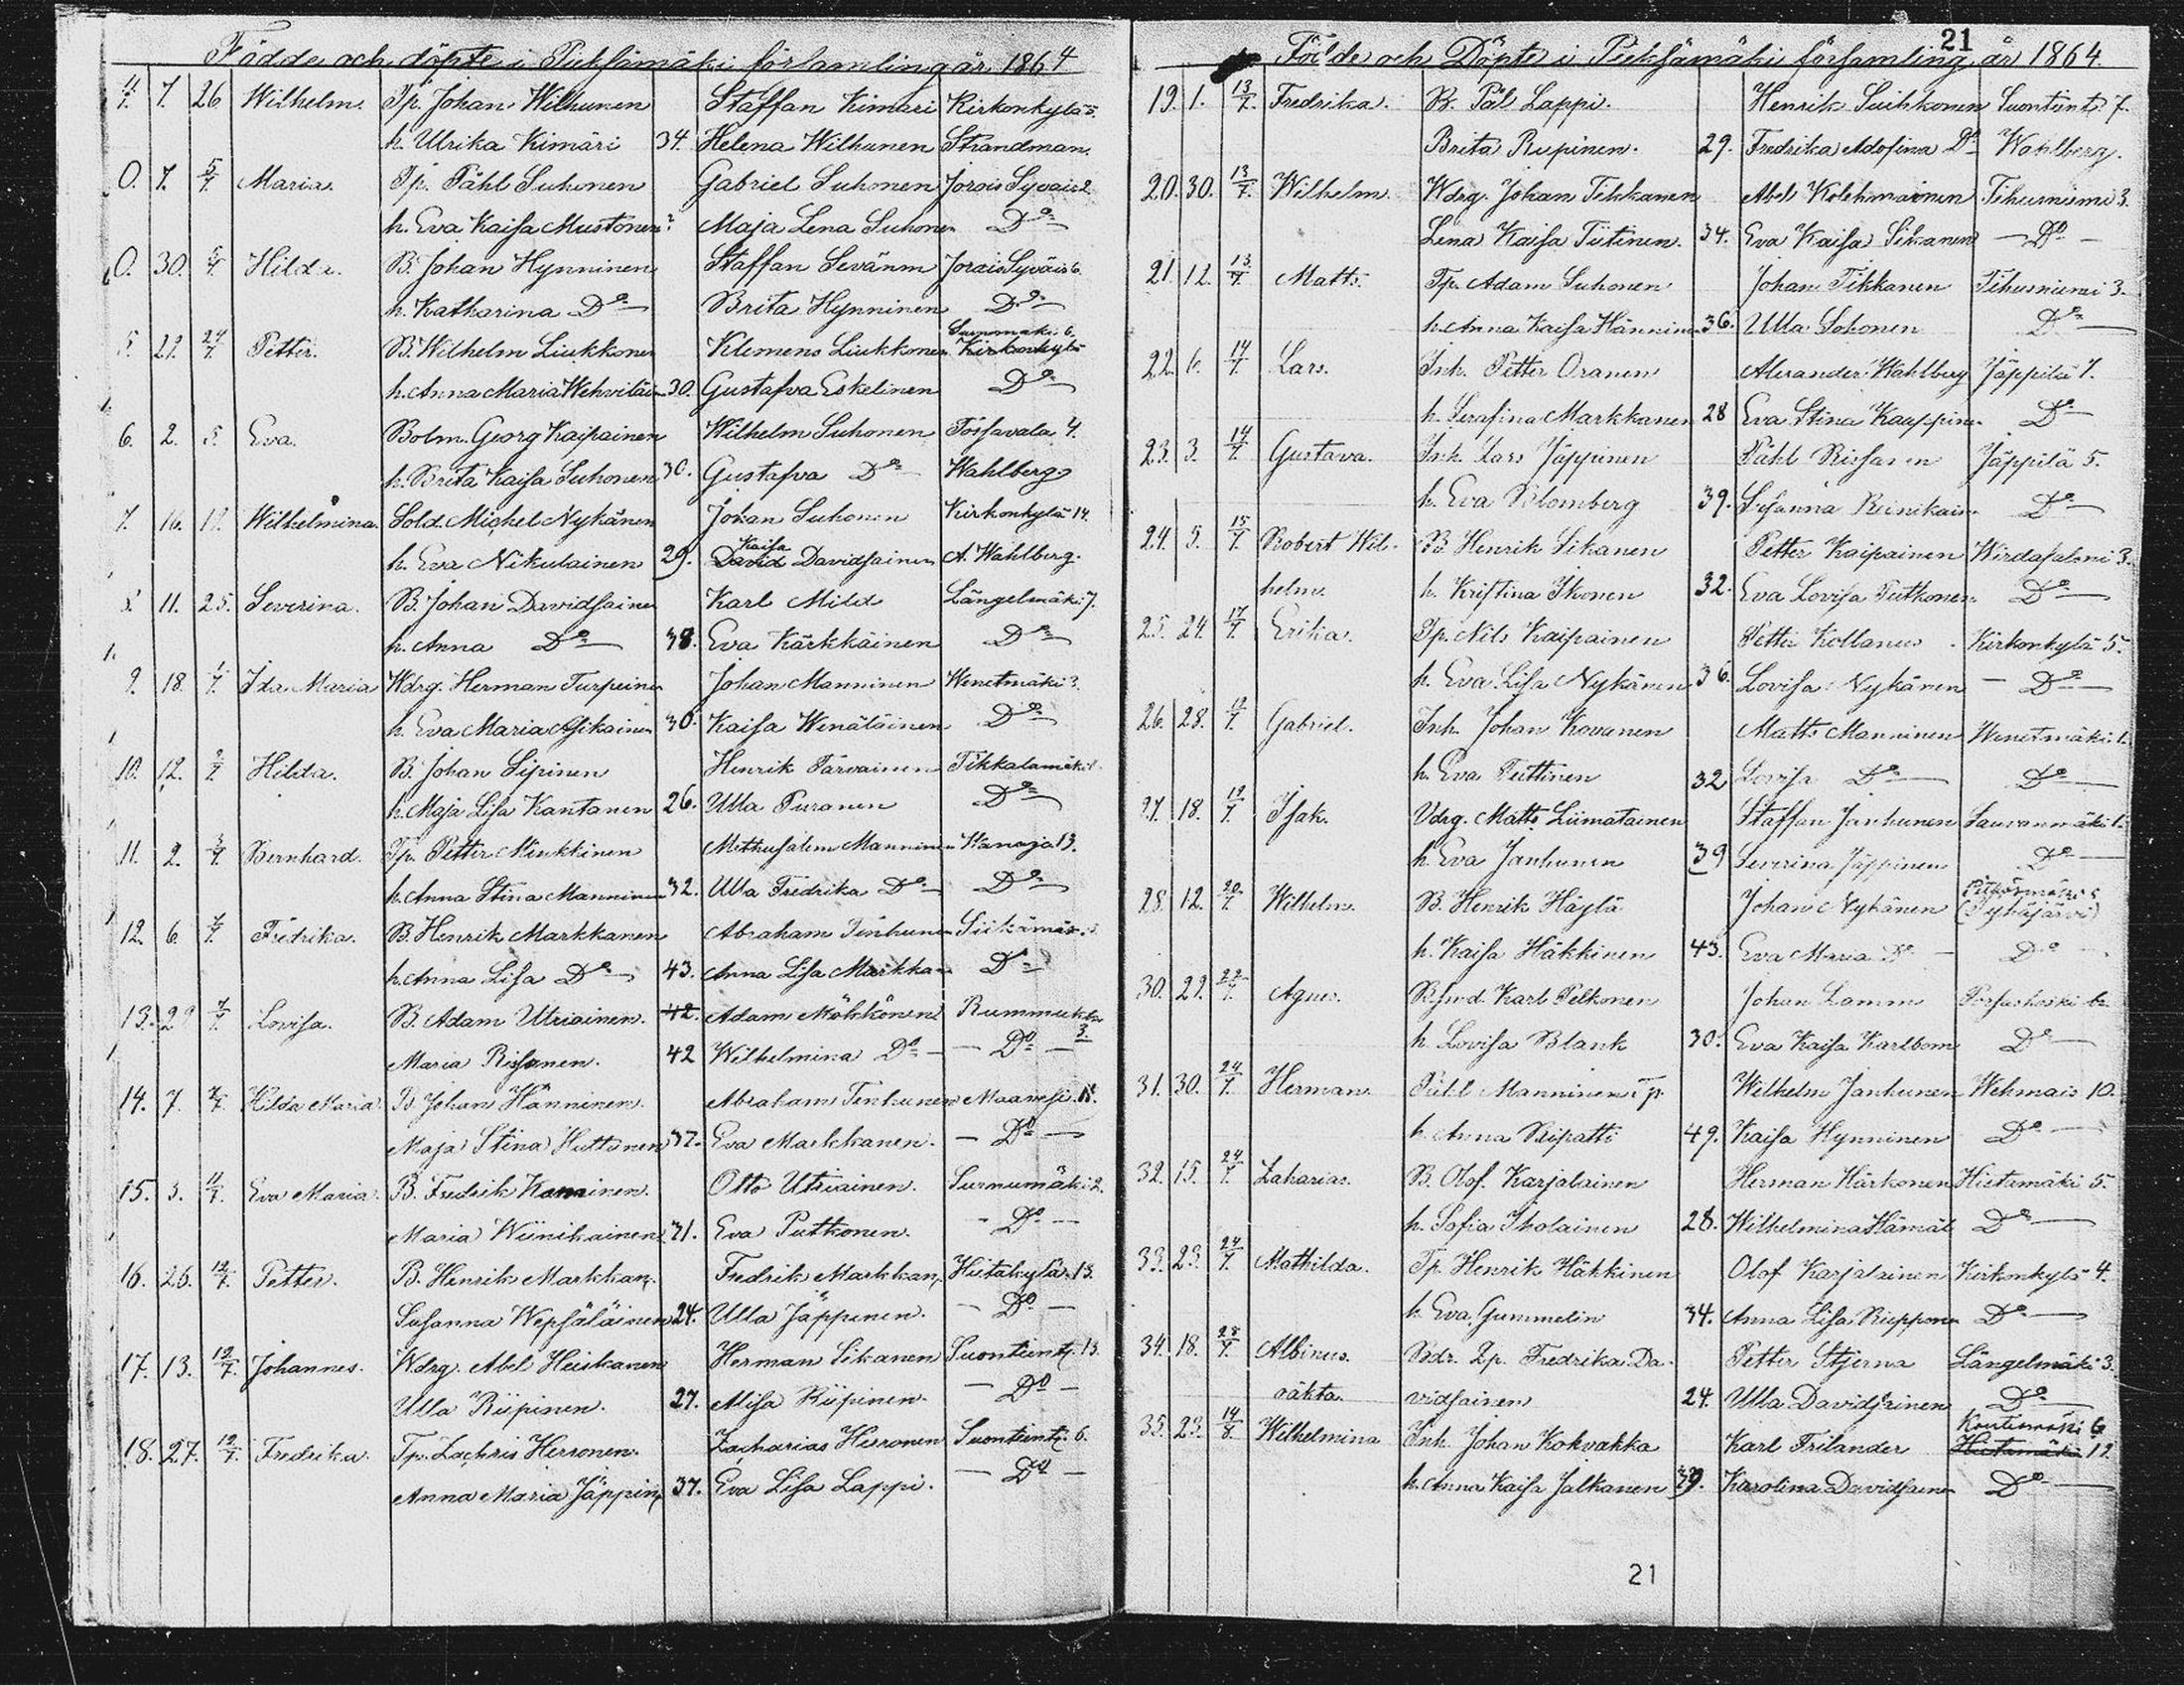 Födde och döpte i Pieksämäki församling år 1864
4/7. 7. 26 Wilhelm. Tp. Johan Wilhunen Staffan Kimari Kirkonkylä 5.
h. Ulrika Kimäri 34. Helena Wilhunen Strandman.
0. 7. 5/7 Maria. Tp. Påhl Suhonen Gabriel Suhonen Jorois Syvais 2.
h. Eva Kaisa Mustonen ? Maja Lena Suhonen Do
0. 30. 5/7 Hilda. B. Johan Hynninen Staffan Sevänm Jorois Syväis 6.
h. Katharina Do Brita Hynninen Do
Surnumäki 6.
5. 29. 24/7 Petter. B. Wilhelm Liukkonen Klemens Liukkonen Kirkonkylä
h. Anna Maria Wehviläin 30. Gustafva Eskelinen Do
6. 2. 5. Eva. Bolm. Georg Kaipainen Wilhelm Suhonen Toisavala 4.
h. Brita Kaisa Suhonen 30. Gustafva Do Wahlberg
7. 16. 19. Wilhelmina. Sold. Michel Nykänen Johan Suhonen Kirkonkylä 14.
h. Eva Nikulainen 29. David Kaisa Davidsainen A. Wahlberg.
8. 11. 25. Severina. B. Johan Davidsainen Karl Mild Längelmäki 7.
h. Anna Do 38. Eva Kärkkäinen Do
9. 18. 1/7 Ida Maria Wdrg. Herman Turpeinen Johan Manninen Wenetmäki 3.
h. Eva Maria Asikainen 30. Kaisa Wenäläinen Do
10. 12. 2/7 Hilda. B. Johan Sipinen Henrik Tarvainen Tikkalamäki
h. Maja Lisa Kantanen 26. Ulla Puranen Do
11. 2. 3/7 Bernhard. Tp. Petter Minkkinen Methusalem Manninen Hanaja 13.
h. Anna Stina Manninen 32. Ulla Fredrika Do Do
12. 6. 7/7. Fredrika. B. Henrik Markkanen Abraham Tenhunen Siikämäk.
h. Anna Lisa Do 43. Anna Lisa Markkan Do
13. 29 7/7. Lovisa. B. Adam Utriainen. 42. Adam Mökkönen Rummuk 3.
Maria Rissanen. 42 Wilhelmina Do Do
14. 7. 7/7. Hilda Maria. B. Johan Hänninen. Abraham Tenhunen Maavesi 18.
Maja Stina Huttunen 37. Eva Markkanen. Do
15. 3. 11/7. Eva Maria. B. Fredrik Kaminen. Otto Utriainen. Surnumäki 2.
Maria Wiinikainen 31. Eva Putkonen. Do
16. 26. 12/7. Petter. B. Henrik Markkan. Fredrik Markkan. Hietakylä 13.
Susanna Wepsäläinen 24. Ulla Jäppinen. Do
17. 13. 12/7. Johannes. Wdrg. Abel Heiskanen Herman Sikanen Suontient. 13.
Ulla Riipinen. 27. Alisa Riipinen. Do
18. 27. 12/7. Fredrika. Tp. Zachris Herronen. Zacharias Herronen Suontient. 6.
Anna Maria Jäppin. 37. Eva Lisa Lappi. Do
21
Födde och Döpte i Pieksämäki församling år 1864.
19. 1. 13/7. Fredrika. B. Pål Lappi. Henrik Suihkonen Suontient. 7.
Brita Riipinen. 29. Fredrika Adolfina Do Wahlberg.
20. 30. 13/7. Wilhelm. Wdrg. Johan Tikkanen Abel Kolehmainen Tihusniemi 3.
Lena Kaisa Tiitinen. 34. Eva Kaisa Sikanen Do
21. 12. 13/7 Matts. Tp. Adam Suhonen Johan Tikkanen Tihusniemi 3.
h. Anna Kaisa Hänninen 36. Ulla Sohonen Do
22. 6. 14/7 Lars. Inh. Petter Oranen Alexander Wahlberg Jäppilä 7.
h. Serafina Markkanen 28 Eva Stina Kauppin Do
23. 3. 14/7. Gustava. Inh. Lars Jäppinen Påhl Rissanen Jäppilä 5.
h. Eva Blomberg 39. Susanna Reinikain Do
24. 5. 15/7. Robert Wil- B. Henrik Sikanen Petter Kaipainen Wirdasalmi 3.
helm. h. Kristina Ikonen 32. Eva Lovisa Putkonen Do
25. 24. 17/7. Erika. Tp. Nils Kaipainen Petter Kollanus Kirkonkylä 5.
h. Eva Lisa Nykänen 36. Lovisa Nykänen Do
26. 28. 17/7. Gabriel. Inh. Johan Kovanen Matts Manninen Wenetmäki 1.
h. Eva Teittinen 32 Lovisa Do Do
27. 18. 19/7. Isak. Vdrg. Matts Liimatainen Staffan Janhunen Sauvanmäki 1.
h. Eva Janhunen 39 Severina Jäppinen Do
28. 12. 20/7. Wilhelm. B. Henrik Häylä Johan Nykänen (Pyhäjärvi)
h. Kaisa Häkkinen 43. Eva Maria Do Do
30. 29. 22/7. Agnes. B. smd. Karl Pelkonen Johan Lamm Porsaskoski 6.
h. Lovisa Blank 30. Eva Kaisa Karlbom Do
31. 30. 24/7. Herman. Påhl Manninen Tp. Wilhelm Janhunen Wehmais 10.
h. Anna Ripatti 49. Kaisa Hynninen Do
32. 15. 24/7 Zaharias. B. Olof. Karjalainen Herman Härkonen Hietamäki 5.
h. Sofia Iholainen 28. Wilhelmina Hämäl Do
33. 23. 24/7. Mathilda. Tp. Henrik Häkkinen Olof Karjalainen Kirkonkylä 4.
h. Eva Gummelin 34. Anna Lisa Ruppon Do
34. 18. 28/7. Albinus. Bdr. Zp. Fredrika Da- Petter Stjerna Längelmäki 3.
oäkta. vidsainen 24. Ulla Davidsainen Do
Kontiomäki 6
35. 23. 14/8. Wilhelmina Inh. Johan Kokvakka Karl Frilander Hietamäki 12
h. Anna Kaisa Jalkanen 39. Karolina Davidsainen Do
21